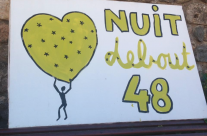 NUIT
debout
48